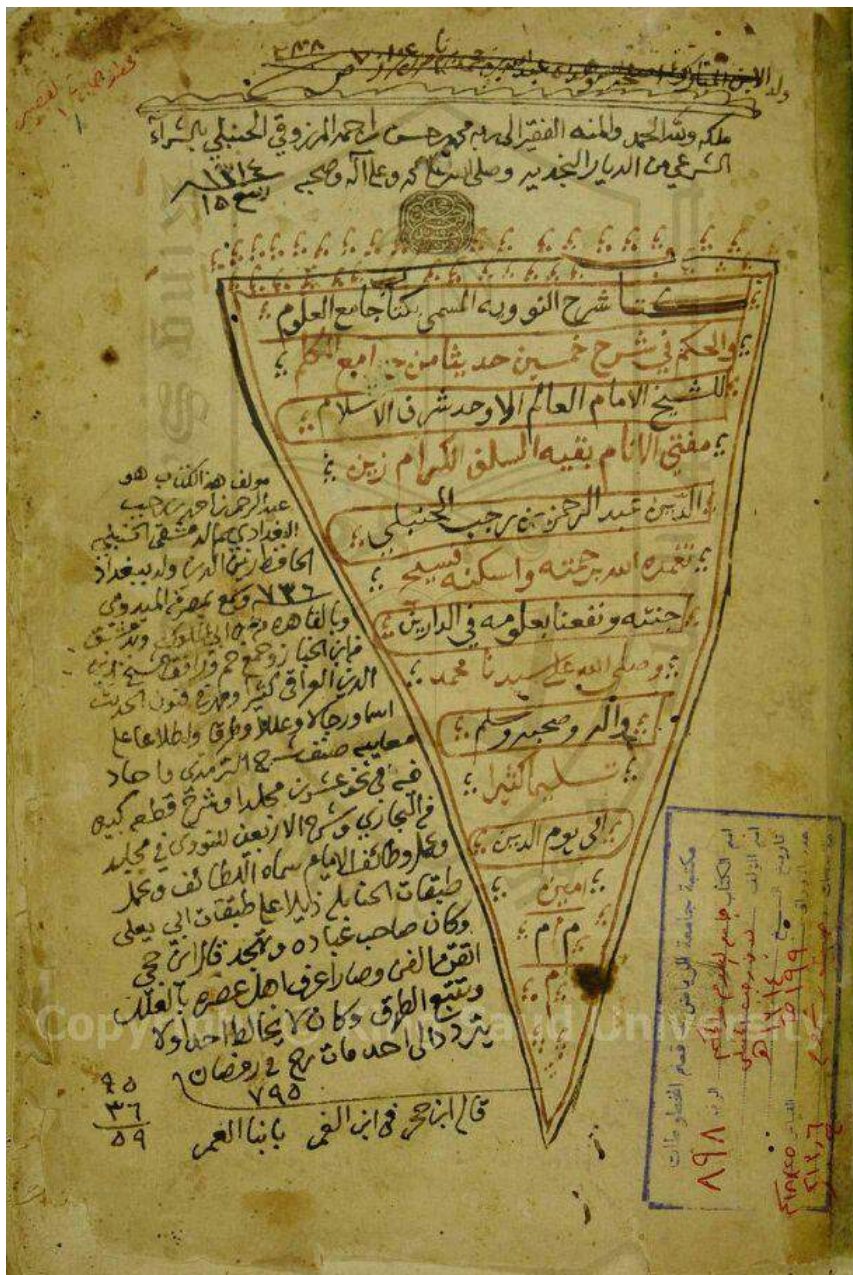 ملكه ولله الحمد والمنه الفقير الى ربه محمد حسن بن احمد المرزوقي الحنبلي بالشرآء
الشرعي من الديار النجديه وصلى الله على محمد وعلى آله وصحبه ١٣١٤
ربيع ١٥
كتاب شرح النوويه المسمى بكتاب جامع العلوم
والحكم في شرح خمسين حديثا من جوامع الكلم
للشيخ الامام العالم الاوحد شرف الاسلام
مفتي الانام بقيه السلف الكرام زين
الدين عبد الرحمن بن رجب الحنبلي
تغمده الله برحمته واسكنه فسيح
جنته ونفعنا بعلومه في الدارين
وصلى الله على سيدنا محمد
واله وصحبه وسلم
تسليما كثيرا
الى يوم الدين
امين
م م
م
مولف هذا الكتاب هو
عبد الرحمن بن احمد بن رجب
البغدادي ثم الدمشقي الحنبلي
الحافظ زين الدين ولد ببغداد
٧٣٦ وسمع بمصر من الميدومي
وبالقاهره من ابن الملوك وبدمشق
من ابن الخباز وجمع جم ورافق الشيخ زين
الدين العراقي كثيرا ومهر في فنون الحديث
اسما ورجالا وعللا وطرقا واطلاعا على
معانيه صنف شرح الترمذي فاجاد
فيه في نحو عشرين مجلدا وشرح قطعه كبيره
من البخاري وشرح الاربعين للنووي في مجلد
وعمل وظائف الايام سماه اللطائف وعمل
طبقات الحنابله ذيلا على طبقات ابي يعلى
وكان صاحب عباده وتهجد قال ابن حجي
اتقن الفن وصار اعرف اهل عصره بالعلل
وتتبع الطرق وكان لا يخالط احدا ولا
يتردد الى احد مات رح في رمضان
٧٩٥
قاله ابن حجر في ابن الغمر بابنا العمر
٩٥
٣٦
٥٩
مكتبة جامعة الرياض - قسم المخطوطات
اسم الكتاب جامع العلوم والحكم الرقم ٨٩٨
اسم المؤلف
تاريخ النسخ ١٣١٤هـ
عدد الاوراق ١٩٩
٢١٣,٦
Copyright © King Saud University